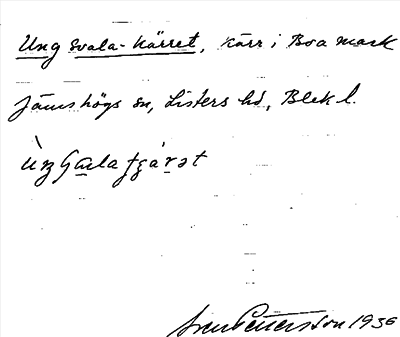 Ung svala-kärret, kärr i Boa mark
Jämshögs sn, Listers hd, Blek l.
Sven Pettersson 1936